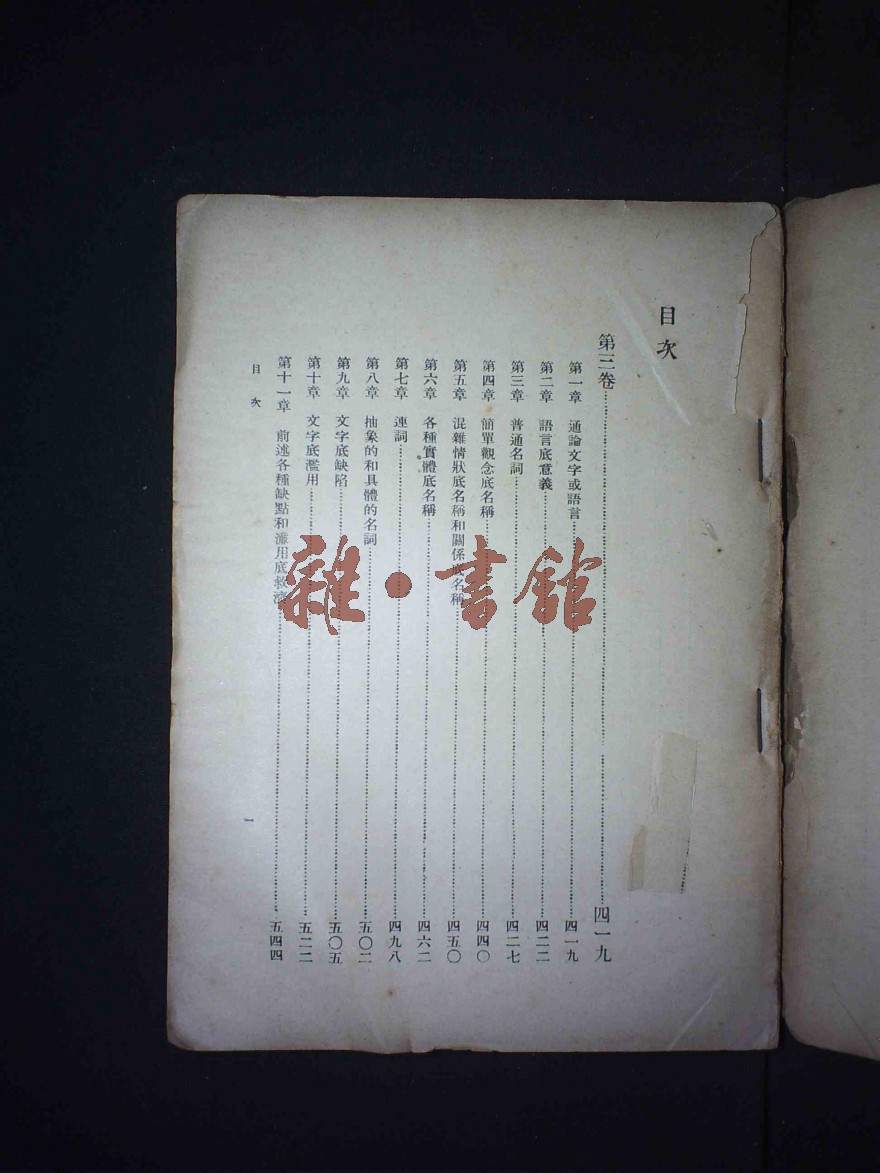 目次
第三卷……四一九
第一章 通論文字或語言……四一九
第二章 語言底意義……四二二
第三章 普通名詞……四二七
第四章 簡單觀念底名稱……四四〇
第五章 混雜情狀底名稱和關係底名稱……四五〇
第六章 各種實體底名稱……四六二
第七章 連詞……四九八
第八章 抽象的和具體的名詞……五〇二
第九章 文字底缺陷……五〇五
第十章 文字底濫用……五二二
第十一章 前述各種缺點和濫用底救濟……五四四
目次
一
雜·書館